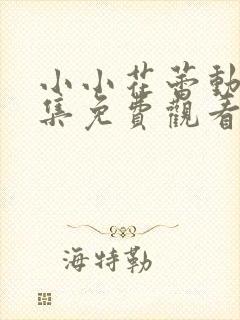 小小花蕾動
集免費觀看
海特勒